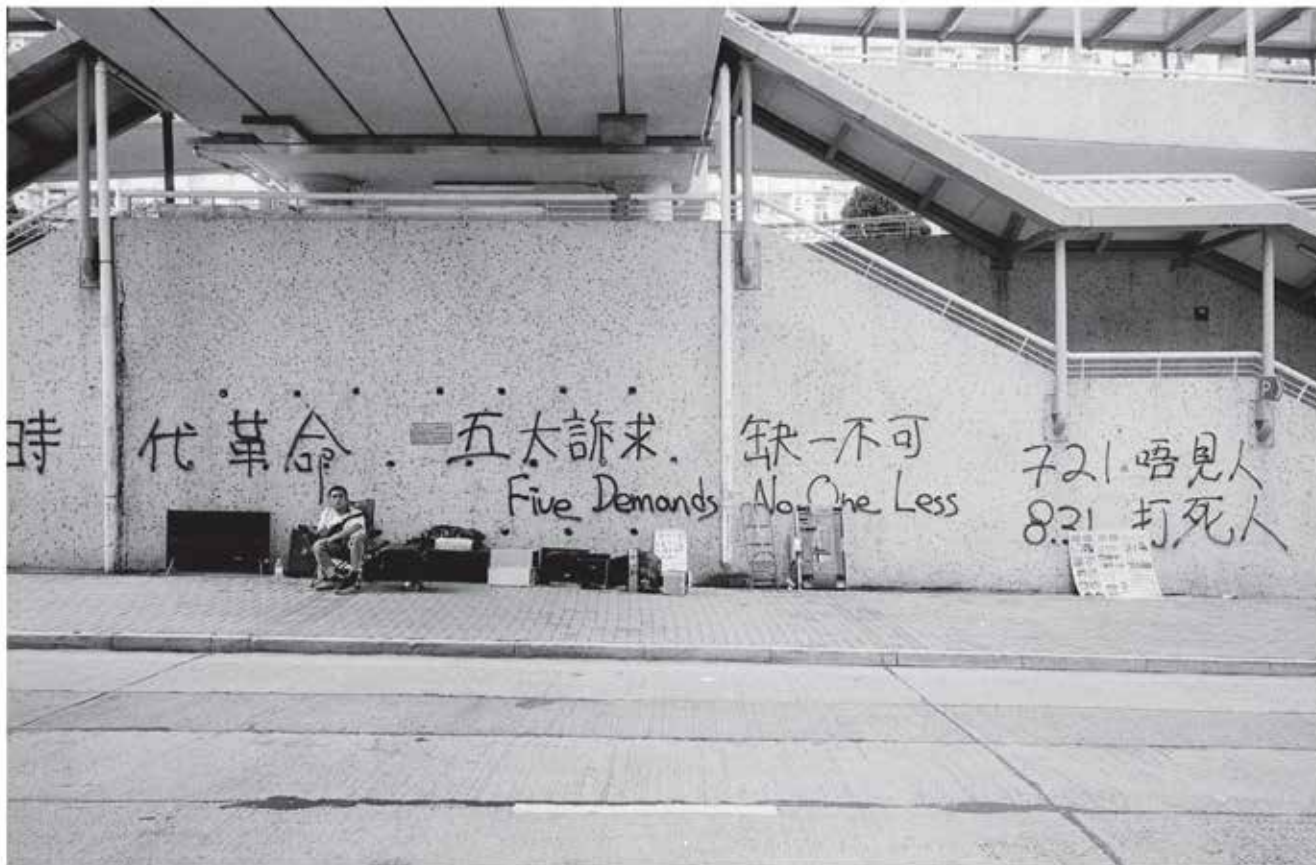 時代革命．五大訴求．缺一不可
Five Demands No One Less
721 唔見人
8.21 打死人
P